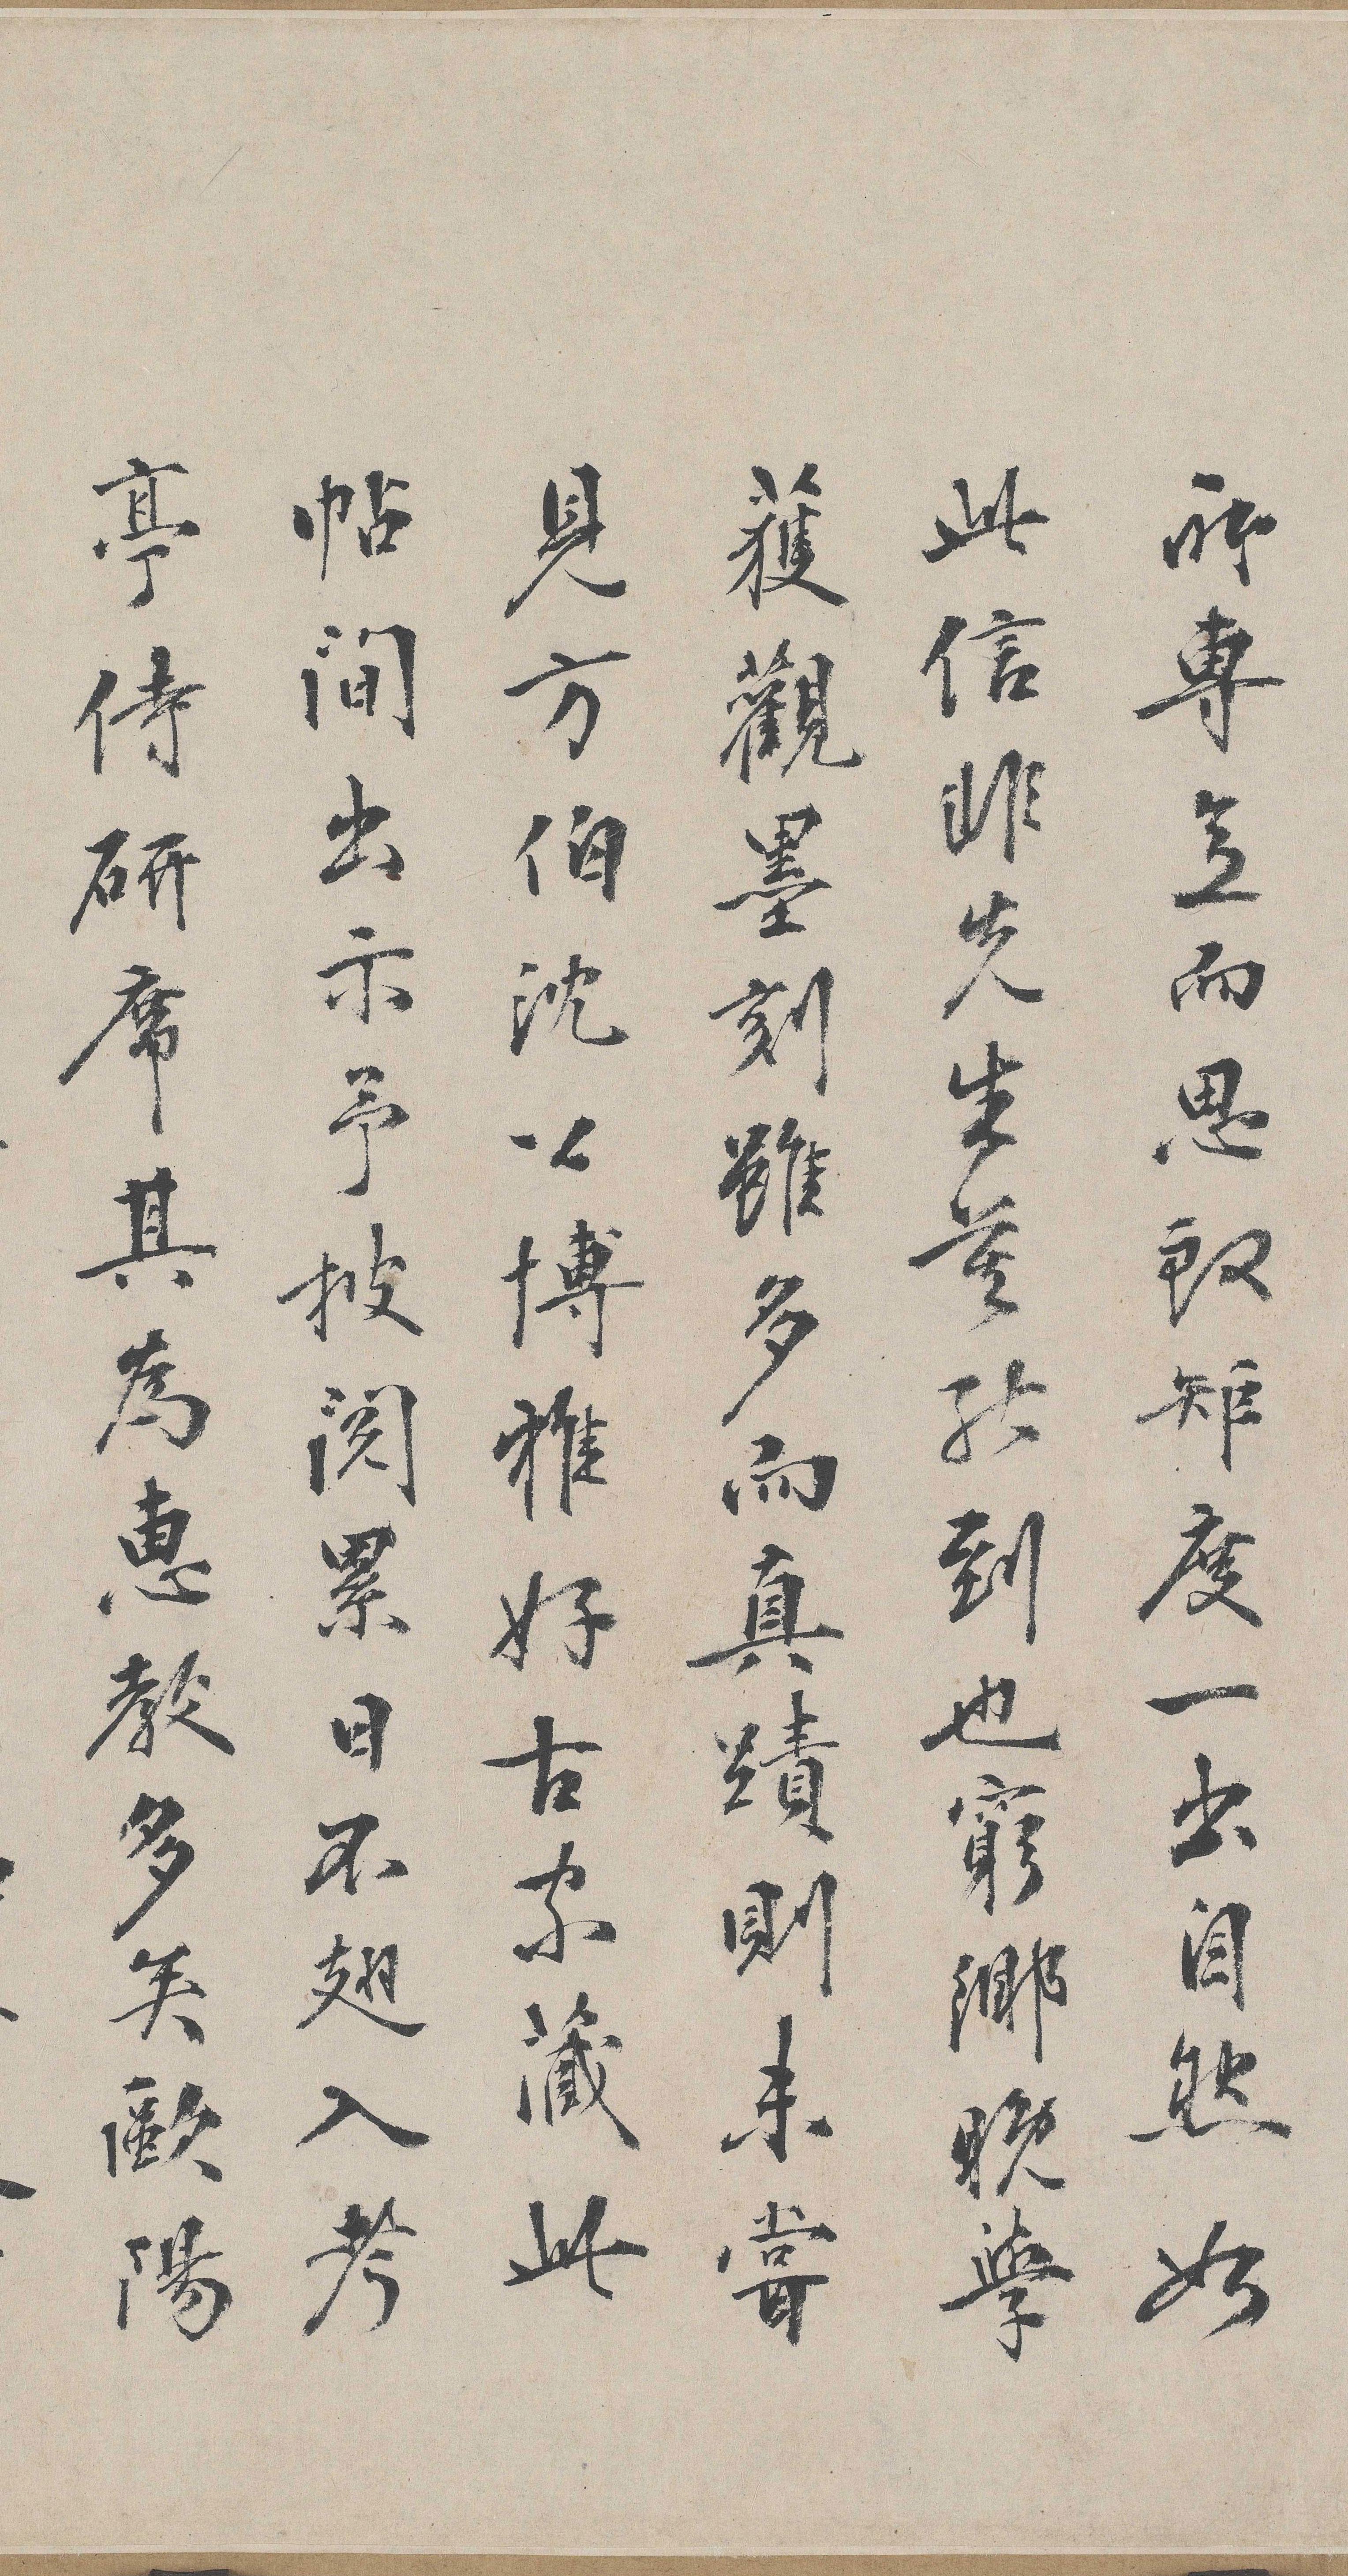 師專立而思矩度一出自然如
此信非先生莫能到也窮鄉晚學
獲觀墨刻雖多而真蹟則未嘗
見方伯沈公博雅好古家藏此
帖間出示予披閱累日不翅入考
亭侍研席其為惠教多矣歐陽